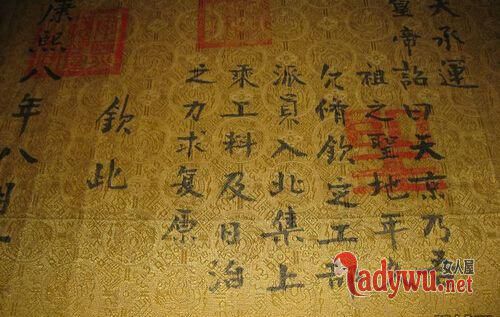 天承运
皇帝詔曰天京乃吾
祖之聖地平
允脩欽定工部
派員入北集上
乘工料及日治
之力求复原
欽此
康熙八年八月
女人屋
ladywu.com